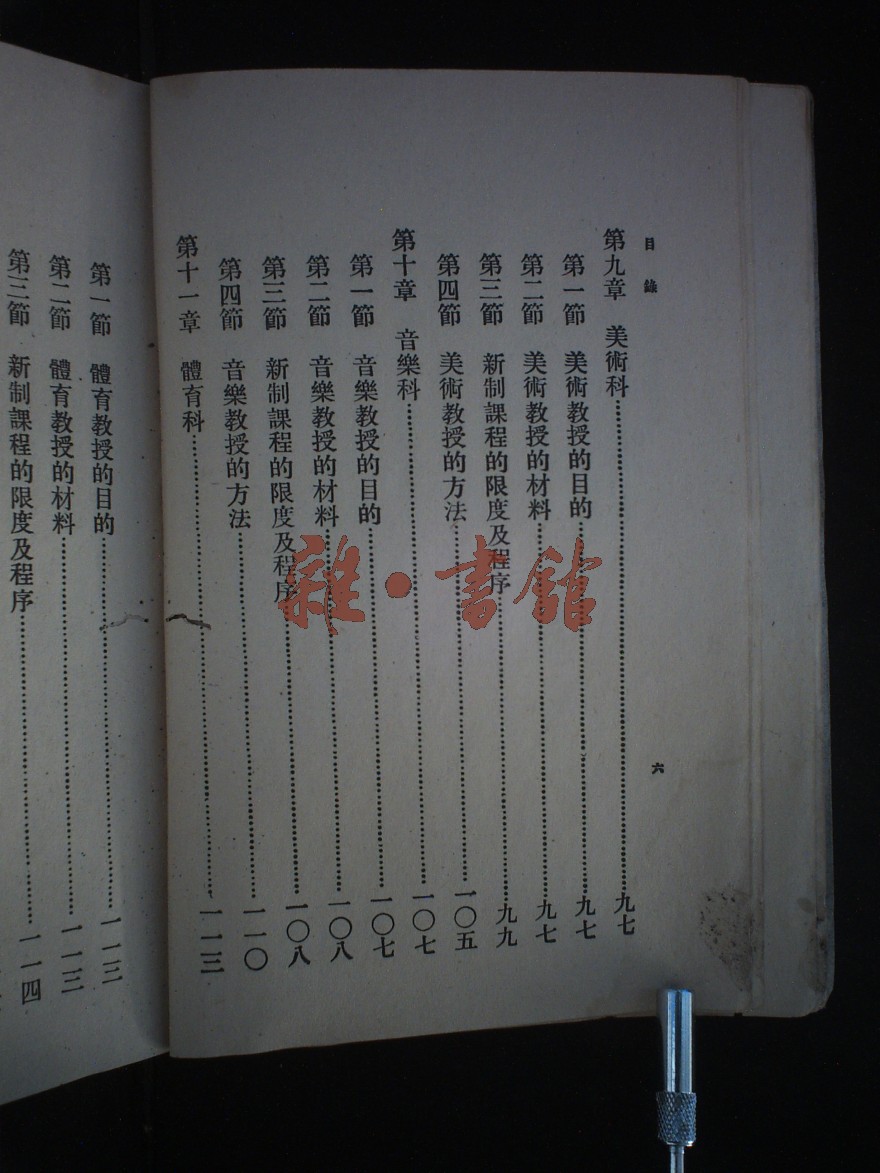 目錄
六
第九章　美術科…………九七
第一節　美術教授的目的…………九七
第二節　美術教授的材料…………九七
第三節　新制課程的限度及程序…………九九
第四節　美術教授的方法…………一〇五
第十章　音樂科…………一〇七
第一節　音樂教授的目的…………一〇七
第二節　音樂教授的材料…………一〇八
第三節　新制課程的限度及程序…………一〇八
第四節　音樂教授的方法…………一一〇
第十一章　體育科…………一一三
第一節　體育教授的目的…………一一三
第二節　體育教授的材料…………一一三
第三節　新制課程的限度及程序…………一一四
雜·書館